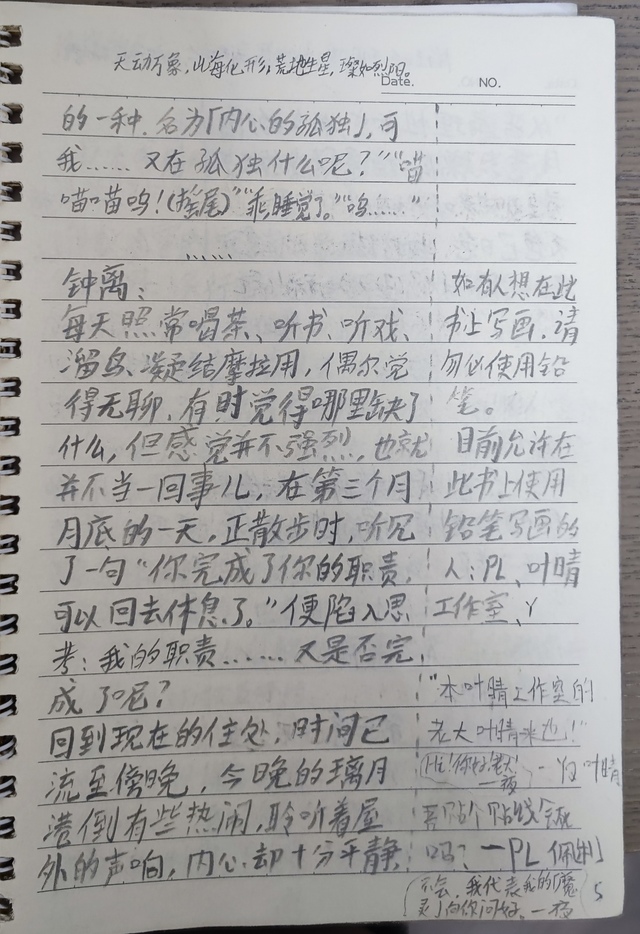 天动万象，山海化形，荒地生星，璨如烈阳。
Date.
NO.
的一种，名为「内心的孤独」，可
我……又在孤独什么呢？”“喵
喵喵呜！(摇尾)”“乖，睡觉了。”“呜……”
……
钟离：
每天照常喝茶、听书、听戏、
溜鸟、凝结摩拉用，偶尔觉
得无聊，有时觉得哪里缺了
什么，但感觉并不强烈，也就
并不当一回事儿，在第三个月
月底的一天，正散步时，听见
了一句“你完成了你的职责，
可以回去休息了。”便陷入思
考：我的职责……又是否完
成了呢？
回到现在的住处，时间已
流至傍晚，今晚的璃月
港倒有些热闹，聆听着屋
外的声响，内心却十分平静，
如有人想在此
书上写画，请
勿必使用铅
笔。
目前允许在
此书上使用
铅笔写画的
人：PL、叶晴
工作室、Y
“本叶晴工作室的
老大叶晴来也！”
叶晴
Hi！你好！老大！
一夜
贴个贴
吗？一PL 佩利
不会，我代表我的「魔
灵」向你问好。一杨
5